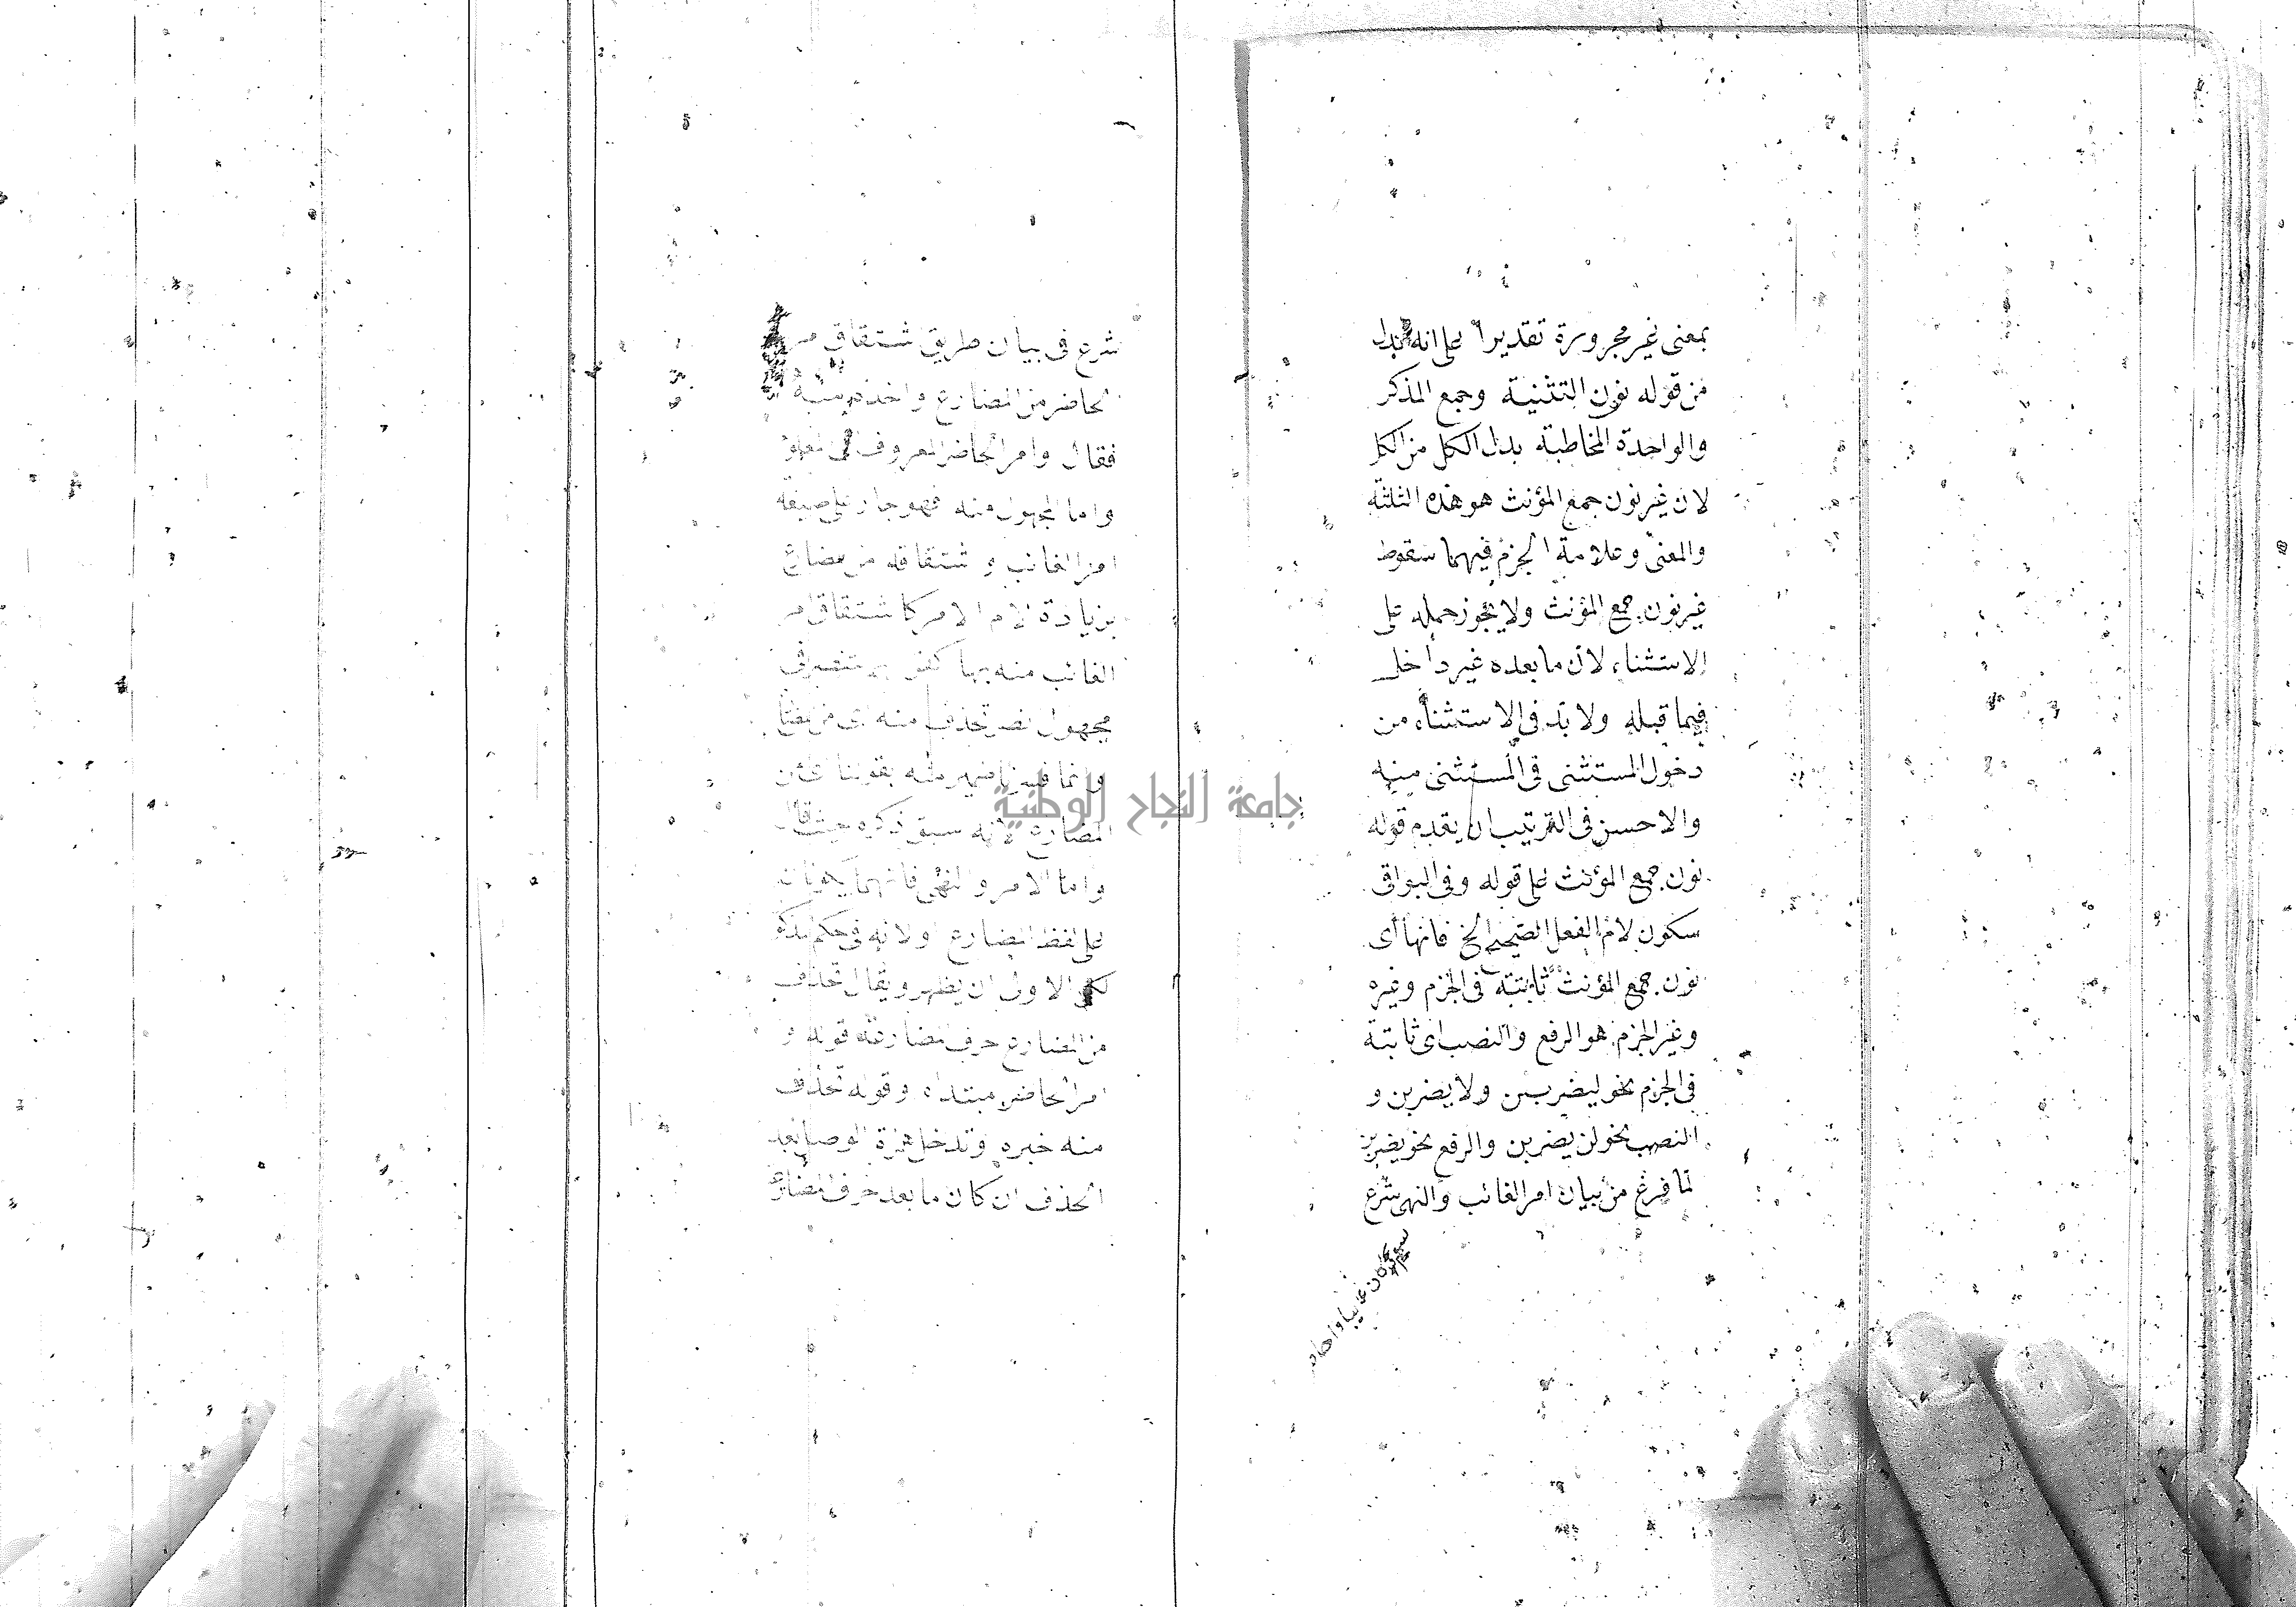 بمعنى غير مجرورة تقديرا على انه بدل
من قوله نون التثنية وجمع المذكر
والواحدة المخاطبة بدل الكل من الكل
لان غير نون جمع المؤنث هو هذه الثلثة
والمعنى وعلامة الجزم فيهما سقوط
غير نون جمع المؤنث ولا يجوز حمله على
الاستثناء لان ما بعده غير داخل
فيما قبله ولا بد في الاستثناء من
دخول المستثنى في المستثنى منه
والاحسن في الترتيب ان يقدم قوله
نون جمع المؤنث على قوله وفي البواقي
سكون لام الفعل الصحيح الخ فانها اى
نون جمع المؤنث ثابتة في الجزم وغيره
وغير الجزم هو الرفع والنصب اى ثابتة
في الجزم نحو ليضربن ولا يضربن و
النصب نحو لن يضربن والرفع نحو يضربن
لما فرغ من بيان امر الغائب والنهى شرع
شرع في بيان طريق اشتقاق
الحاضر من المضارع واخذه منه
فقال وامر الحاضر المعروف
واما المجهول منه فهو جار على صيغة
امر الغائب واشتقاقه من مضارع
بزيادة لام الامر كاشتقاق امر
الغائب منه بها
مجهول تنصر تحذف منه اى من
وانما
المضارع لانه سبق ذكره حيث قال
واما الامر والنهى فانهما يكونان
على لفظ المضارع او لانه في حكم
الاولى ان يظهر ويقال تحذف
من المضارع حرف مضارعة قوله و
امر الحاضر مبتداء وقوله تحذف
منه خبره وتدخل همزة الوصل بعد
الحذف ان كان ما بعد حرف المضارع
جامعة النجاح الوطنية